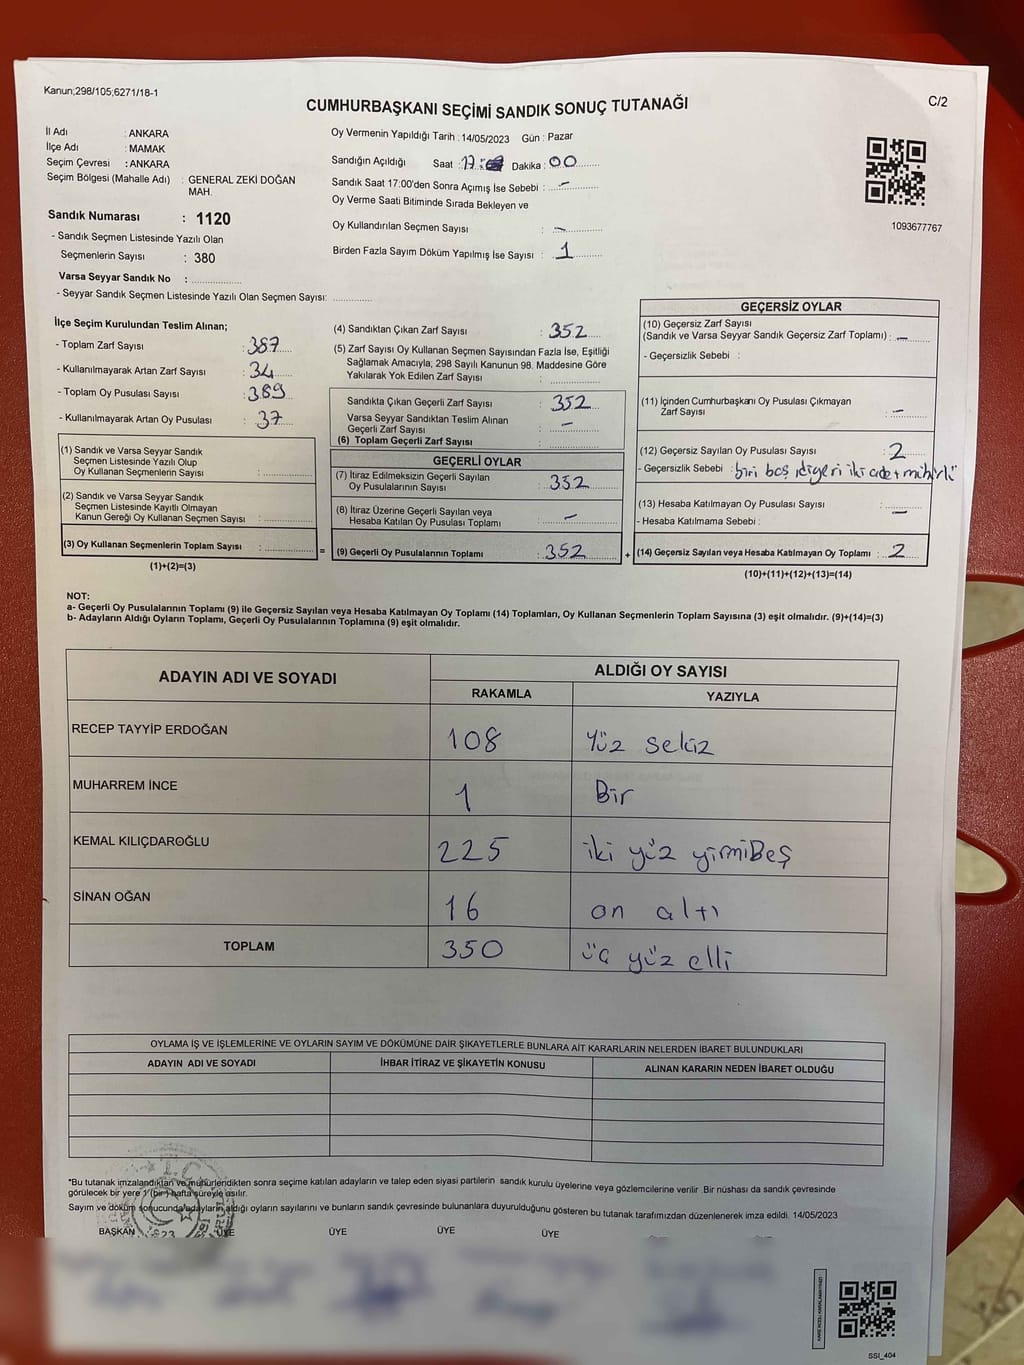 Kanun;298/105;6271/18-1
CUMHURBAŞKANI SEÇİMİ SANDIK SONUÇ TUTANAĞI
C/2
İl Adı : ANKARA
İlçe Adı : MAMAK
Seçim Çevresi : ANKARA
Seçim Bölgesi (Mahalle Adı) : GENERAL ZEKİ DOĞAN
MAH.
Sandık Numarası : 1120
- Sandık Seçmen Listesinde Yazılı Olan
Seçmenlerin Sayısı : 380
Varsa Seyyar Sandık No :
- Seyyar Sandık Seçmen Listesinde Yazılı Olan Seçmen Sayısı:
Oy Vermenin Yapıldığı Tarih : 14/05/2023 Gün : Pazar
Sandığın Açıldığı Saat : 17: Dakika : 00
Sandık Saat 17:00'den Sonra Açımış İse Sebebi : -
Oy Verme Saati Bitiminde Sırada Bekleyen ve
Oy Kullandırılan Seçmen Sayısı : -
Birden Fazla Sayım Döküm Yapılmış İse Sayısı : 1
1093677767
İlçe Seçim Kurulundan Teslim Alınan;
- Toplam Zarf Sayısı : 387
- Kullanılmayarak Artan Zarf Sayısı : 34
- Toplam Oy Pusulası Sayısı : 389
- Kullanılmayarak Artan Oy Pusulası : 37
(1) Sandık ve Varsa Seyyar Sandık
Seçmen Listesinde Yazılı Olup
Oy Kullanan Seçmenlerin Sayısı :
(2) Sandık ve Varsa Seyyar Sandık
Seçmen Listesinde Kayıtlı Olmayan
Kanun Gereği Oy Kullanan Seçmen Sayısı :
(3) Oy Kullanan Seçmenlerin Toplam Sayısı :
(1)+(2)=(3)
(4) Sandıktan Çıkan Zarf Sayısı : 352
(5) Zarf Sayısı Oy Kullanan Seçmen Sayısından Fazla İse, Eşitliği
Sağlamak Amacıyla; 298 Sayılı Kanunun 98. Maddesine Göre
Yakılarak Yok Edilen Zarf Sayısı :
Sandıkta Çıkan Geçerli Zarf Sayısı : 352
Varsa Seyyar Sandıktan Teslim Alınan
Geçerli Zarf Sayısı : -
(6) Toplam Geçerli Zarf Sayısı :
GEÇERLİ OYLAR
(7) İtiraz Edilmeksizin Geçerli Sayılan
Oy Pusulalarının Sayısı : 352
(8) İtiraz Üzerine Geçerli Sayılan veya
Hesaba Katılan Oy Pusulası Toplamı : -
= (9) Geçerli Oy Pusulalarının Toplamı : 352 +
GEÇERSİZ OYLAR
(10) Geçersiz Zarf Sayısı
(Sandık ve Varsa Seyyar Sandık Geçersiz Zarf Toplamı) : -
- Geçersizlik Sebebi :
(11) İçinden Cumhurbaşkanı Oy Pusulası Çıkmayan
Zarf Sayısı : -
(12) Geçersiz Sayılan Oy Pusulası Sayısı : 2
- Geçersizlik Sebebi : biri boş diğeri iki adet mühürlü
(13) Hesaba Katılmayan Oy Pusulası Sayısı : -
- Hesaba Katılmama Sebebi :
(14) Geçersiz Sayılan veya Hesaba Katılmayan Oy Toplamı : 2
(10)+(11)+(12)+(13)=(14)
NOT:
a- Geçerli Oy Pusulalarının Toplamı (9) ile Geçersiz Sayılan veya Hesaba Katılmayan Oy Toplamı (14) Toplamları, Oy Kullanan Seçmenlerin Toplam Sayısına (3) eşit olmalıdır. (9)+(14)=(3)
b- Adayların Aldığı Oyların Toplamı, Geçerli Oy Pusulalarının Toplamına (9) eşit olmalıdır.
ADAYIN ADI VE SOYADI
ALDIĞI OY SAYISI
RAKAMLA YAZIYLA
RECEP TAYYİP ERDOĞAN 108 Yüz sekiz
MUHARREM İNCE 1 Bir
KEMAL KILIÇDAROĞLU 225 iki yüz yirmiBeş
SİNAN OĞAN 16 on altı
TOPLAM 350 üç yüz elli
OYLAMA İŞ VE İŞLEMLERİNE VE OYLARIN SAYIM VE DÖKÜMÜNE DAİR ŞİKAYETLERLE BUNLARA AİT KARARLARIN NELERDEN İBARET BULUNDUKLARI
ADAYIN ADI VE SOYADI İHBAR İTİRAZ VE ŞİKAYETİN KONUSU ALINAN KARARIN NEDEN İBARET OLDUĞU
*Bu tutanak imzalandıktan ve mühürlendikten sonra seçime katılan adayların ve talep eden siyasi partilerin sandık kurulu üyelerine veya gözlemcilerine verilir .Bir nüshası da sandık çevresinde
görülecek bir yere 1 (bir) hafta süreyle asılır.
Sayım ve döküm sonucunda adayların aldığı oyların sayılarını ve bunların sandık çevresinde bulunanlara duyurulduğunu gösteren bu tutanak tarafımızdan düzenlenerek imza edildi. 14/05/2023
BAŞKAN ÜYE ÜYE ÜYE ÜYE
T.C.
23
SSI_404